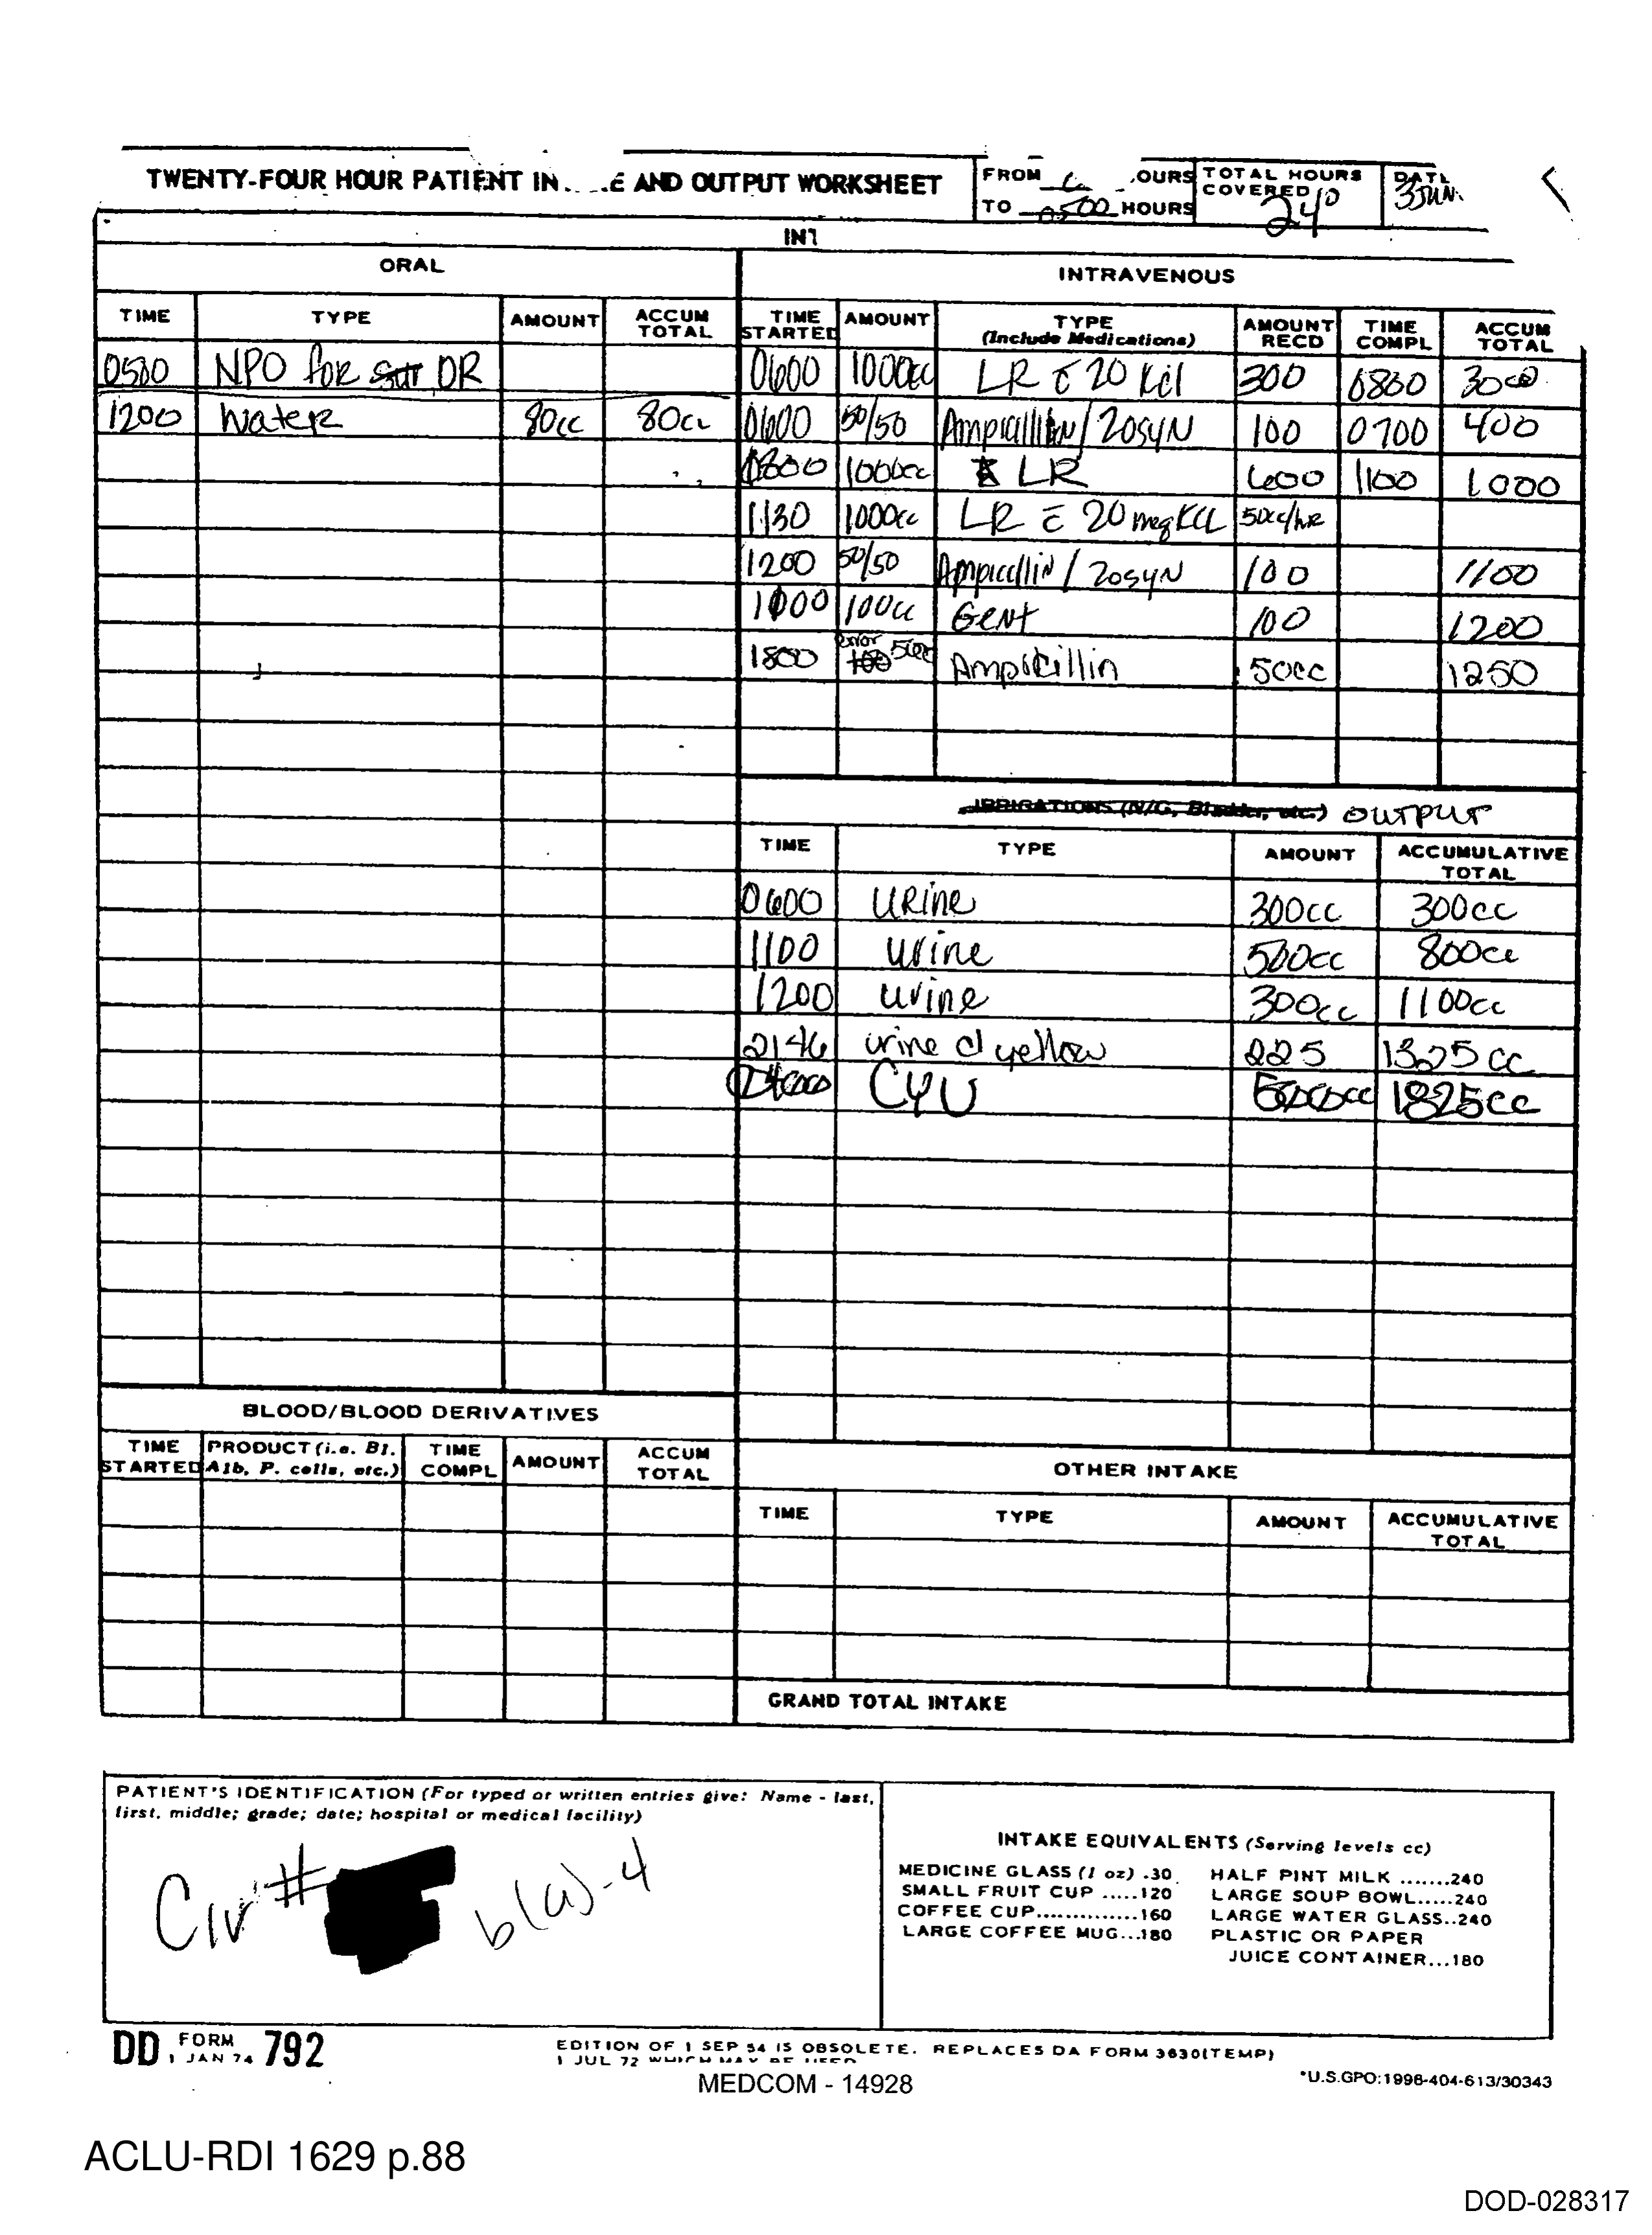 TWENTY-FOUR HOUR PATIENT IN E AND OUTPUT WORKSHEET
FROM OURS
TO 0500 HOURS
TOTAL HOURS COVERED 24°
DATE 3 JUN.
INT
ORAL
TIME TYPE AMOUNT ACCUM TOTAL
0500 NPO for OR
1200 Water 80cc 80cc
INTRAVENOUS
TIME STARTED AMOUNT TYPE (Include Medications) AMOUNT RECD TIME COMPL ACCUM TOTAL
0600 1000cc LR c̄ 20 Kcl 300 0800 300
0600 50/50 Ampicillin/Zosyn 100 0700 400
0800 1000cc LR 600 1100 1000
1130 1000cc LR c̄ 20 meq KCL 50cc/hr
1200 50/50 Ampicillin/Zosyn 100 1100
1000 100cc Gent 100 1200
1800 error 100 50cc Ampicillin 50cc 1250
IRRIGATIONS (N/G, Bladder, etc.) OUTPUT
TIME TYPE AMOUNT ACCUMULATIVE TOTAL
0600 Urine 300cc 300cc
1100 urine 500cc 800cc
1200 urine 300cc 1100cc
2146 urine cl yellow 225 1325cc
CYU 500cc 1825cc
BLOOD/BLOOD DERIVATIVES
TIME STARTED PRODUCT (i.e. Bl. Alb, P. cells, etc.) TIME COMPL AMOUNT ACCUM TOTAL
OTHER INTAKE
TIME TYPE AMOUNT ACCUMULATIVE TOTAL
GRAND TOTAL INTAKE
PATIENT'S IDENTIFICATION (For typed or written entries give: Name - last,
first, middle; grade; date; hospital or medical facility)
Civ #
b(a)-4
INTAKE EQUIVALENTS (Serving levels cc)
MEDICINE GLASS (1 oz) .30 HALF PINT MILK .......240
SMALL FRUIT CUP .....120 LARGE SOUP BOWL.....240
COFFEE CUP..............160 LARGE WATER GLASS..240
LARGE COFFEE MUG...180 PLASTIC OR PAPER
JUICE CONTAINER...180
DD FORM 1 JAN 74 792
EDITION OF 1 SEP 54 IS OBSOLETE. REPLACES DA FORM 3630(TEMP)
1 JUL 72 WHICH MAY BE USED
*U.S.GPO:1998-404-613/30343
MEDCOM - 14928
ACLU-RDI 1629 p.88
DOD-028317